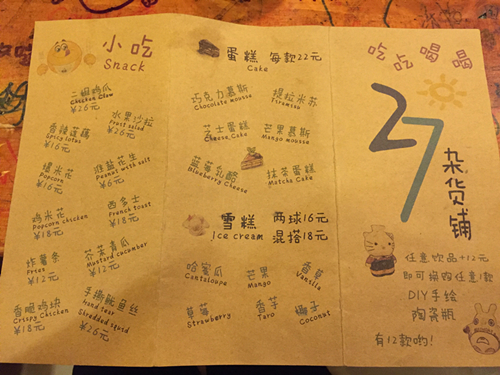 小吃
Snack
二妞鸡爪
Chicken Claw
¥26元
水果沙拉
Fruit salad
¥26元
香辣莲藕
Spicy lotus
¥16元
椒盐花生
Peanut with salt
¥6元
爆米花
Popcorn
¥16元
鸡米花
Popcorn chicken
¥18元
西多士
French toast
¥18元
炸薯条
Fries
¥12元
芥末青瓜
Mustard cucumber
¥12元
香脆鸡块
Crispy Chicken
¥18元
手撕鱿鱼丝
Hand tear
Shredded squid
¥26元
蛋糕 每款22元
Cake
巧克力慕斯
Chocolate mousse
提拉米苏
Tiramisu
芝士蛋糕
Cheese Cake
芒果慕斯
Mango mousse
蓝莓乳酪
Blueberry Cheese
抹茶蛋糕
Matcha Cake
雪糕
Ice cream
两球16元
混搭18元
哈蜜瓜
Cantaloupe
芒果
Mango
香草
Vanilla
草莓
Strawberry
香芋
Taro
椰子
Coconut
吃吃喝喝
27
杂货铺
任意饮品+12元
即可换购任意1款
DIY手绘
陶瓷瓶
有12款哟!